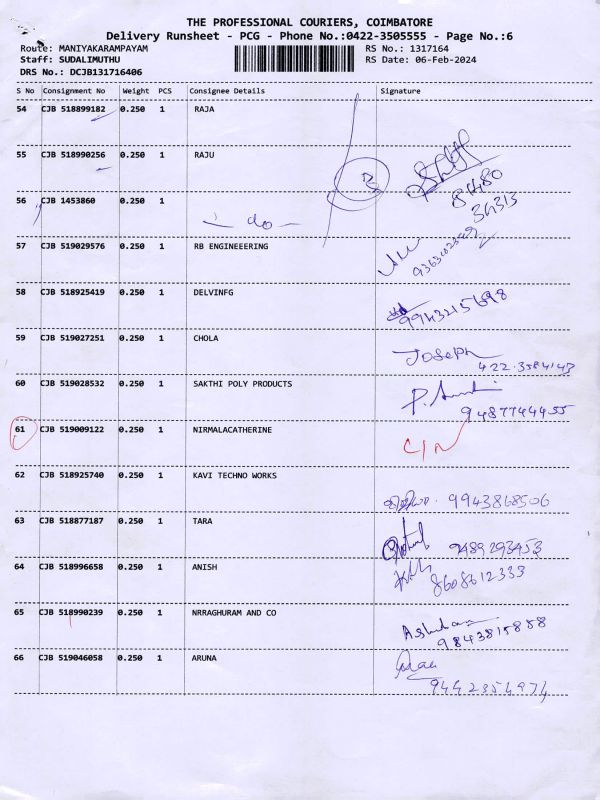 THE PROFESSIONAL COURIERS, COIMBATORE
Delivery Runsheet - PCG - Phone No.:0422-3505555 - Page No.:6
Route: MANIYAKARAMPAYAM RS No.: 1317164
Staff: SUDALIMUTHU RS Date: 06-Feb-2024
DRS No.: DCJB131716406
S No Consignment No Weight PCS Consignee Details Signature
54 CJB 518899182 0.250 1 RAJA
55 CJB 518990256 0.250 1 RAJU
81480
36313
56 CJB 1453860 0.250 1
- do -
57 CJB 519029576 0.250 1 RB ENGINEEERING
58 CJB 518925419 0.250 1 DELVINFG
9943215698
59 CJB 519027251 0.250 1 CHOLA
Joseph
422.3584143
60 CJB 519028532 0.250 1 SAKTHI POLY PRODUCTS
9487744455
61 CJB 519009122 0.250 1 NIRMALACATHERINE
C/N
62 CJB 518925740 0.250 1 KAVI TECHNO WORKS
9943868506
63 CJB 518877187 0.250 1 TARA
9489293453
64 CJB 518996658 0.250 1 ANISH
8608612333
65 CJB 518990239 0.250 1 NRRAGHURAM AND CO
9843815858
66 CJB 519046058 0.250 1 ARUNA
9442354974